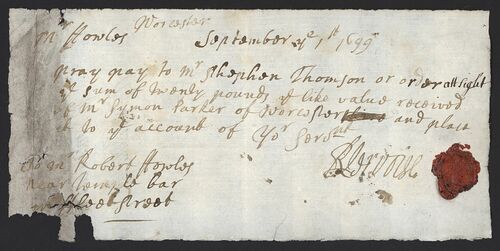 Mr Howles Worcester
September ye 1st 1699
pray pay to Mr Stephen Thomson or order att sight
ye sum of Twenty pounds ye like value received
of Mr Symon Parker of Worcester and place
it to ye account of Yor Servnt
To Mr Robert Howles
near Temple bar
Fleetstreet